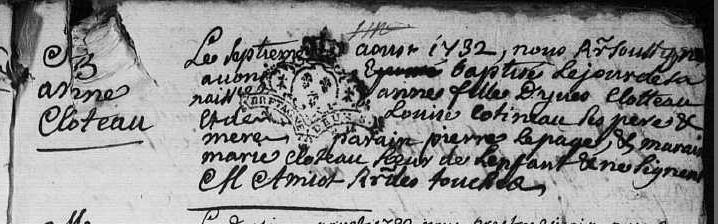 B
anne
Cloteau
Le septieme aoust 1732, nous soussigne
avons baptisé le jour de sa
naissance anne fille D'yves Clotteau
et de Louise Cotineau ses pere &
mere parain pierre lepage, & maraine
marie Cloteau soeur de L'enfant & ne signent
C M Amiot des touches